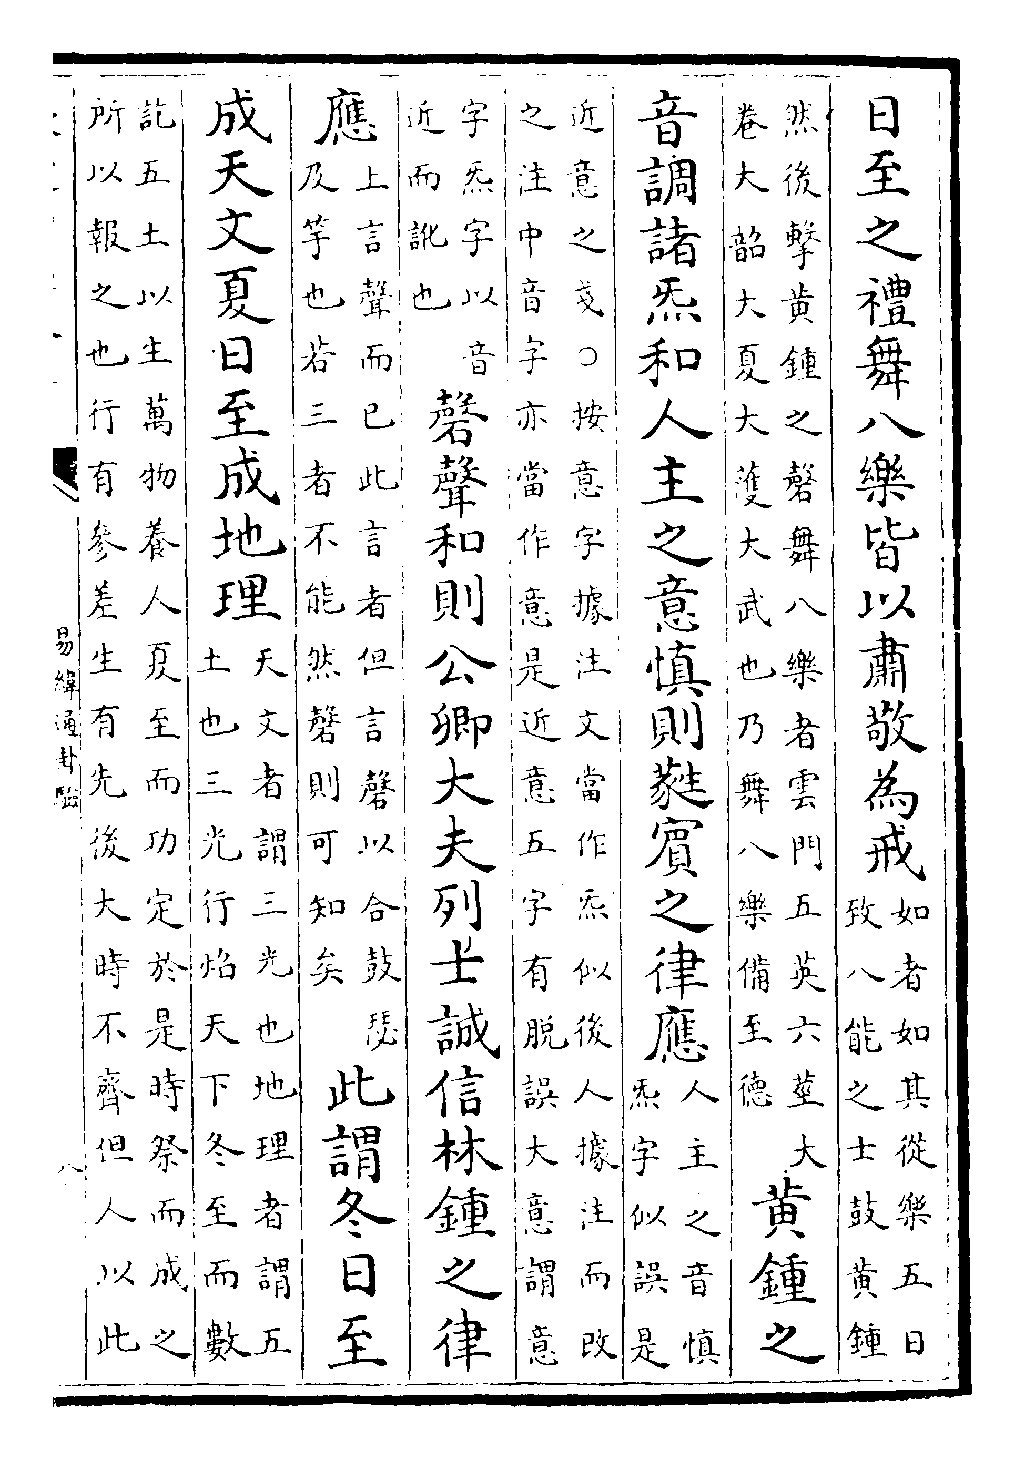 日至之禮舞八樂皆以肅敬為戒
如者如其從樂五日
致八能之士鼓黄鍾
然後擊黄鍾之磬舞八樂者雲門五英六莖大
卷大韶大夏大濩大武也乃舞八樂備至德
黄鍾之
音調諸炁和人主之意慎則蕤賓之律應
人主之音慎
炁字似誤是
近意之戔○按意字據注文當作炁似後人據注而改
之注中音字亦當作意是近意五字有脱誤大意謂意
字炁字以音
近而訛也
磬聲和則公卿大夫列士誠信林鍾之律
應
上言聲而已此言者但言磬以合鼓瑟
及竽也若三者不能然磬則可知矣
此謂冬日至
成天文夏日至成地理
天文者謂三光也地理者謂五
土也三光行焰天下冬至而數
訖五土以生萬物養人夏至而功定於是時祭而成之
所以報之也行有參差生有先後大時不齊但人以此
易緯通卦驗
八